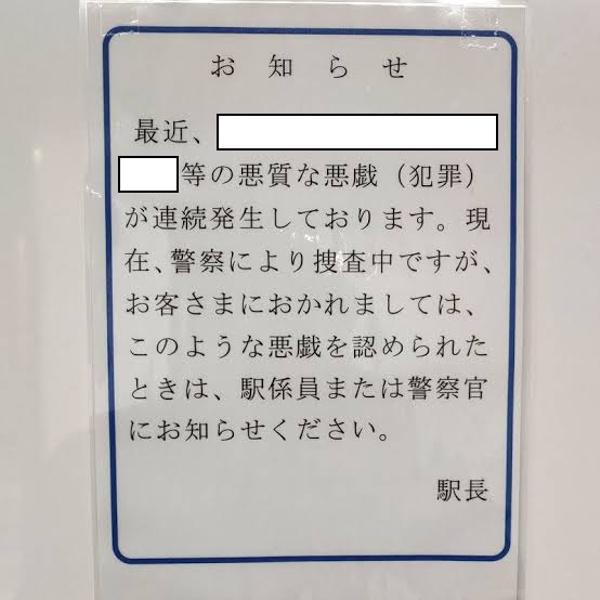 お知らせ
最近、
等の悪質な悪戯（犯罪）
が連続発生しております。現
在、警察により捜査中ですが、
お客さまにおかれましては、
このような悪戯を認められた
ときは、駅係員または警察官
にお知らせください。
駅長